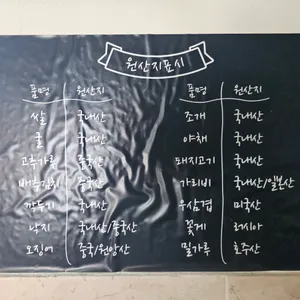 원산지표시
품명 원산지
쌀 국내산
굴 국내산
고춧가루 중국산
배추김치 중국산
깍두기 국내산
낙지 국내산/중국산
오징어 중국/원양산
품명 원산지
조개 국내산
야채 국내산
돼지고기 국내산
가리비 국내산/일본산
우삼겹 미국산
꽃게 러시아
밀가루 호주산